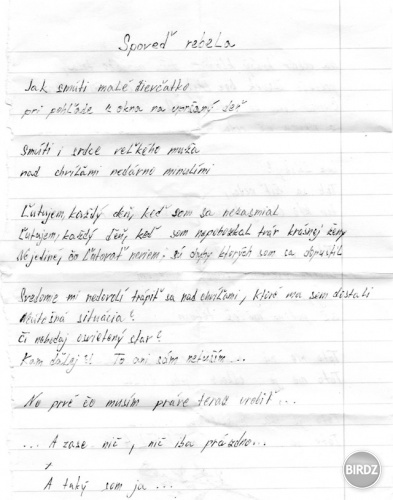 Spoveď rebela
Jak smúti malé dievčatko
pri pohľade z okna na upršaný deň
Smúti i srdce veľkého muža
nad chvíľami nedávno minulími
Ľutujem, každý deň, keď som sa nezasmial
Ľutujem, každý deň, keď som nepobozkal tvár krásnej ženy
Nejedine, čo Ľutovať neviem: sú chyby ktorých som sa dopustil
Svedomie mi nedovolí trápiť sa nad chvíľami, ktoré ma sem dostali
Neutešná situácia?
Či nebodaj osvietený stav?
Kam ďalej?! To ani sám netuším...
No prvé čo musím práve teraz urobiť...
... A zase nič, nič iba prázdno...
A taký som ja ...
BIRDZ